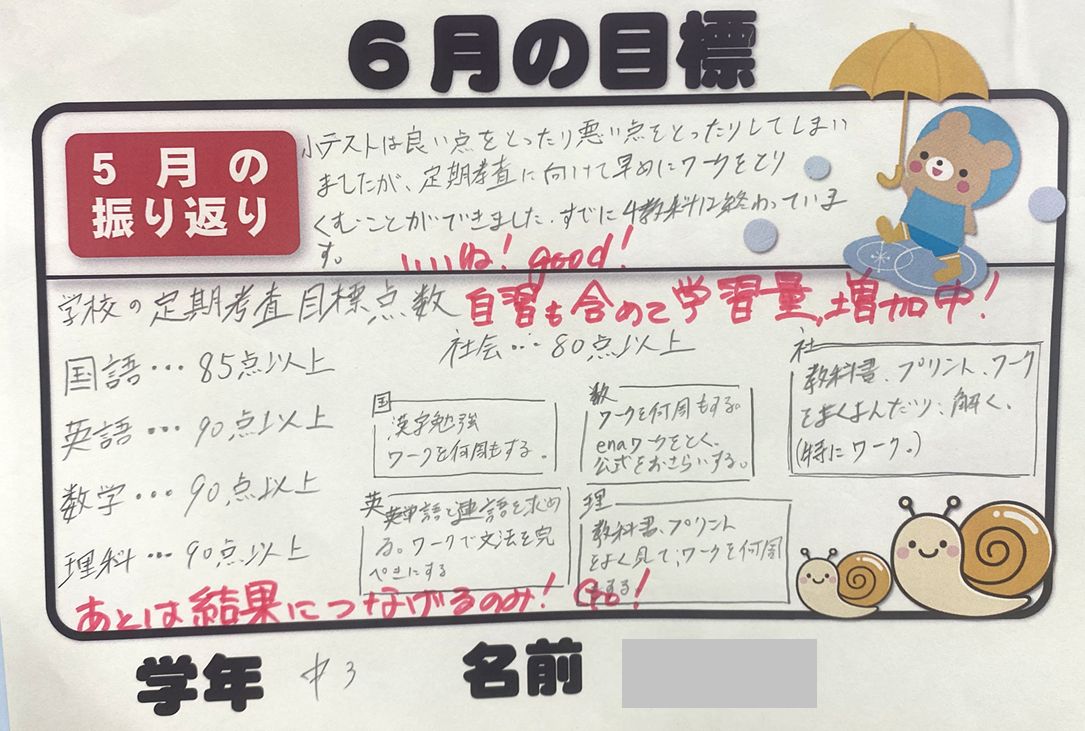 6月の目標
5月の
振り返り
小テストは良い点をとったり悪い点をとったりしてしまい
ましたが、定期考査に向けて早めにワークをとり
くむことができました。すでに4教科は終わっていま
す。
いいね! good!
学校の定期考査目標点数
自習も含めて学習量、増加中!
国語…85点以上
社会…80点以上
英語…90点以上
数学…90点以上
理科…90点以上
国
漢字勉強
ワークを何周もする。
数
ワークを何周もする。
enaワークをとく。
公式をおさらいする。
社
教科書、プリント、ワーク
をよくよんだり、解く。
(特にワーク。)
英
英単語と連語を求め
る。ワークで文法を完
ぺきにする
理
教科書、プリント
をよく見て、ワークを何周
もする
あとは結果につなげるのみ! Go!
学年 中3
名前